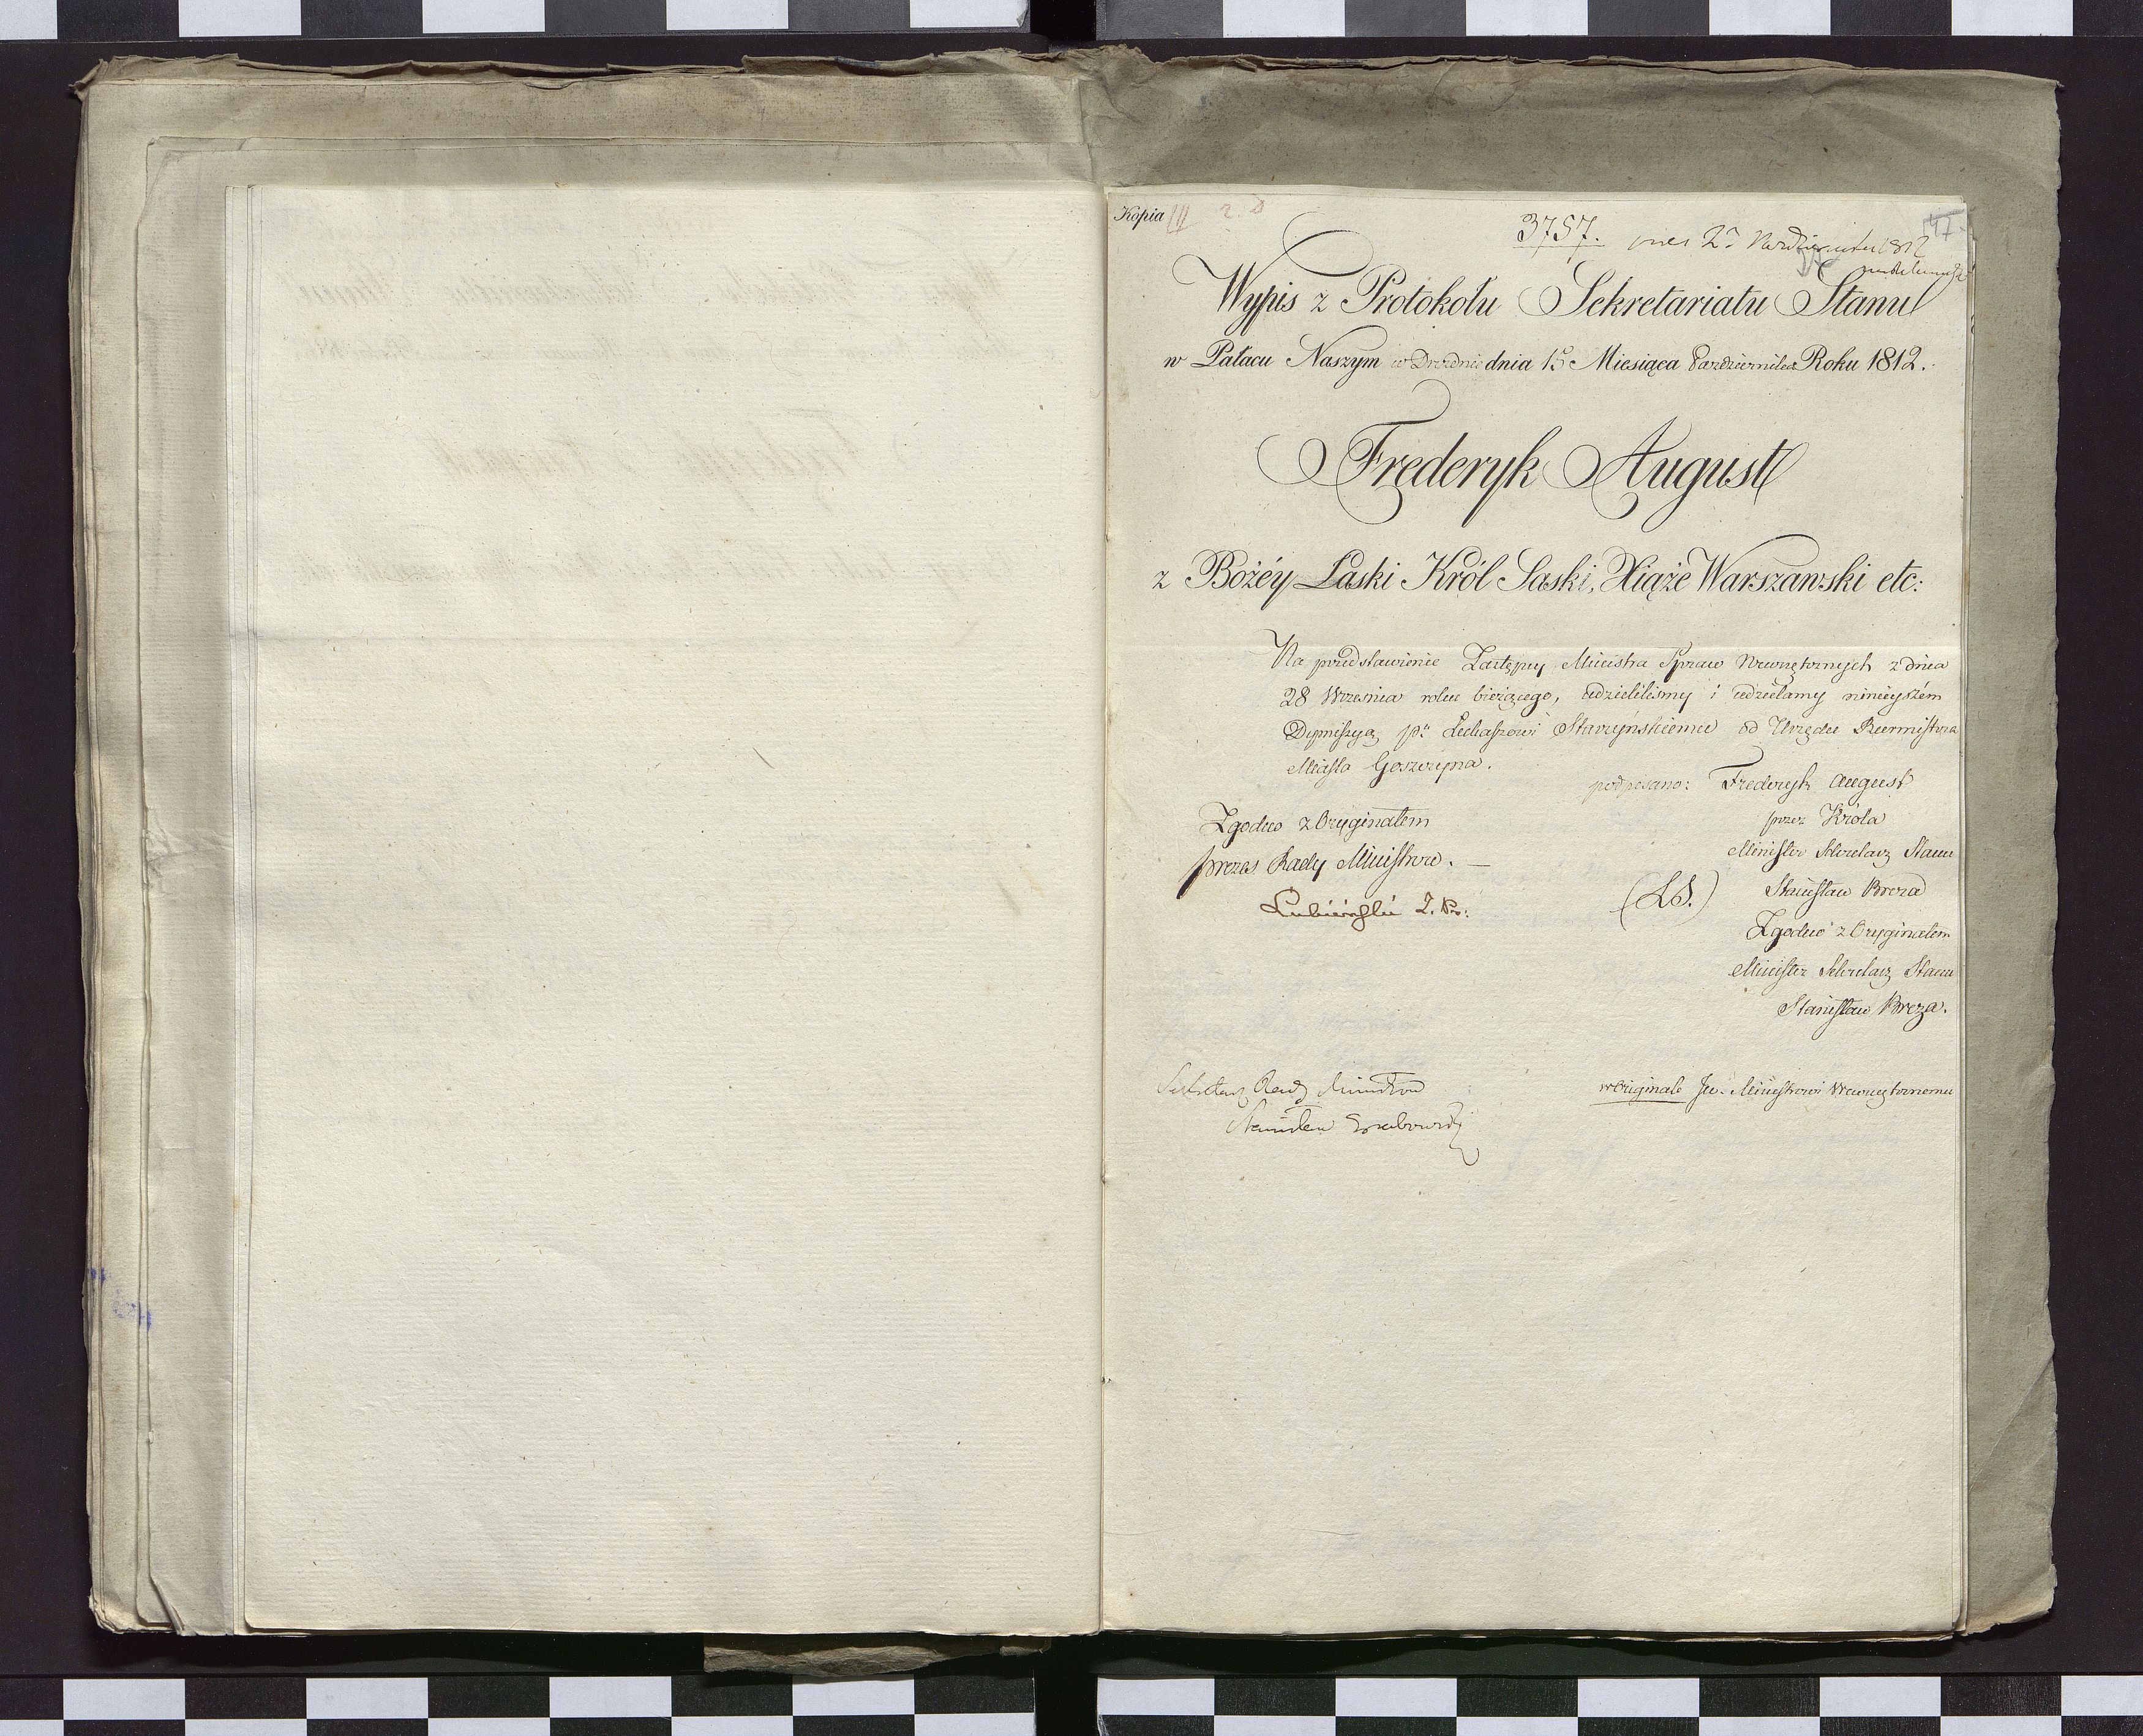 Kopia III
41.
3757.
Wypis z Protokołu Sekretariatu Stanu
w Pałacu Naszym w Dreznie dnia 15 Miesiąca Października Roku 1812.
Frederyk August
z Bożéy Łaski Król Saski, Xiąże Warszawski etc:
Na przedstawienie Zastępcy Ministra Spraw Wewnętrznych z dnia
28 Wrzesnia roku bieżącego, udzieliliśmy i udzielamy ninieyszém
Dymissyą pu Łukaszowi Starzynskiemu od Urzędu Burmistrza
Miasta Goszczyna.
podpisano: Frederyk August
przez Króla
Minister Sekretarz Stanu
(LS.) Stanisław Breza
Zgodno z Oryginałem
Minister Sekretarz Stanu
Stanisław Breza.
Zgodno z Oryginałem
Prezes Rady Ministrow. —
Lubieński Z. Pr:
Sekretarz Rady Ministrow
Stanisław Grabowski
w Originale Jw. Ministrowi Wewnętrznemu